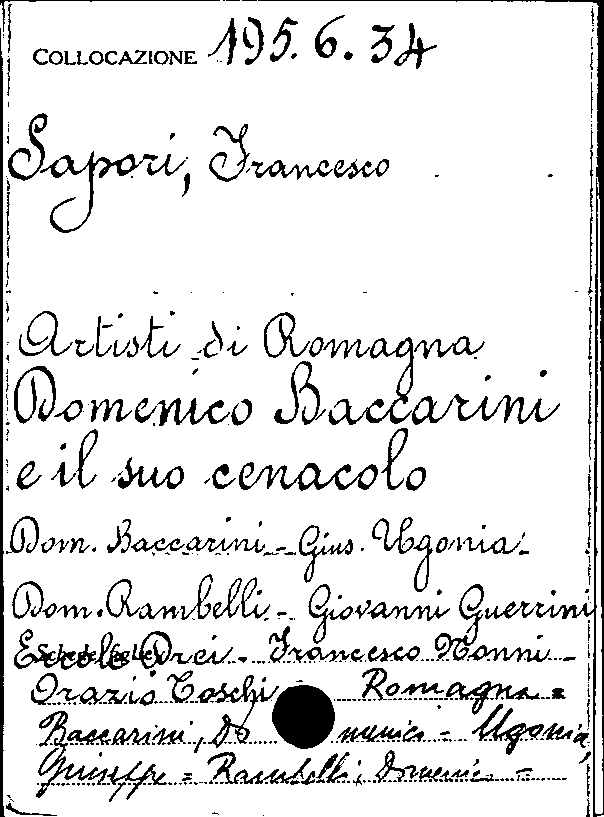 COLLOCAZIONE 195. 6. 34
Sapori, Francesco
Artisti di Romagna
Domenico Baccarini
e il suo cenacolo
Dom. Baccarini - Gius. Ugonia -
Dom. Rambelli - Giovanni Guerrini
Ercole Drei - Francesco Nonni -
Orazio Toschi Romagna =
Baccarini, Do menico = Ugonia,
Giuseppe = Rambelli, Domenico =